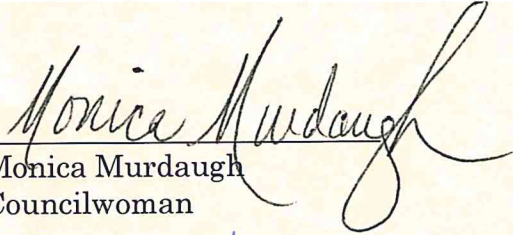 Monica Murdaugh
Monica Murdaugh
Councilwoman